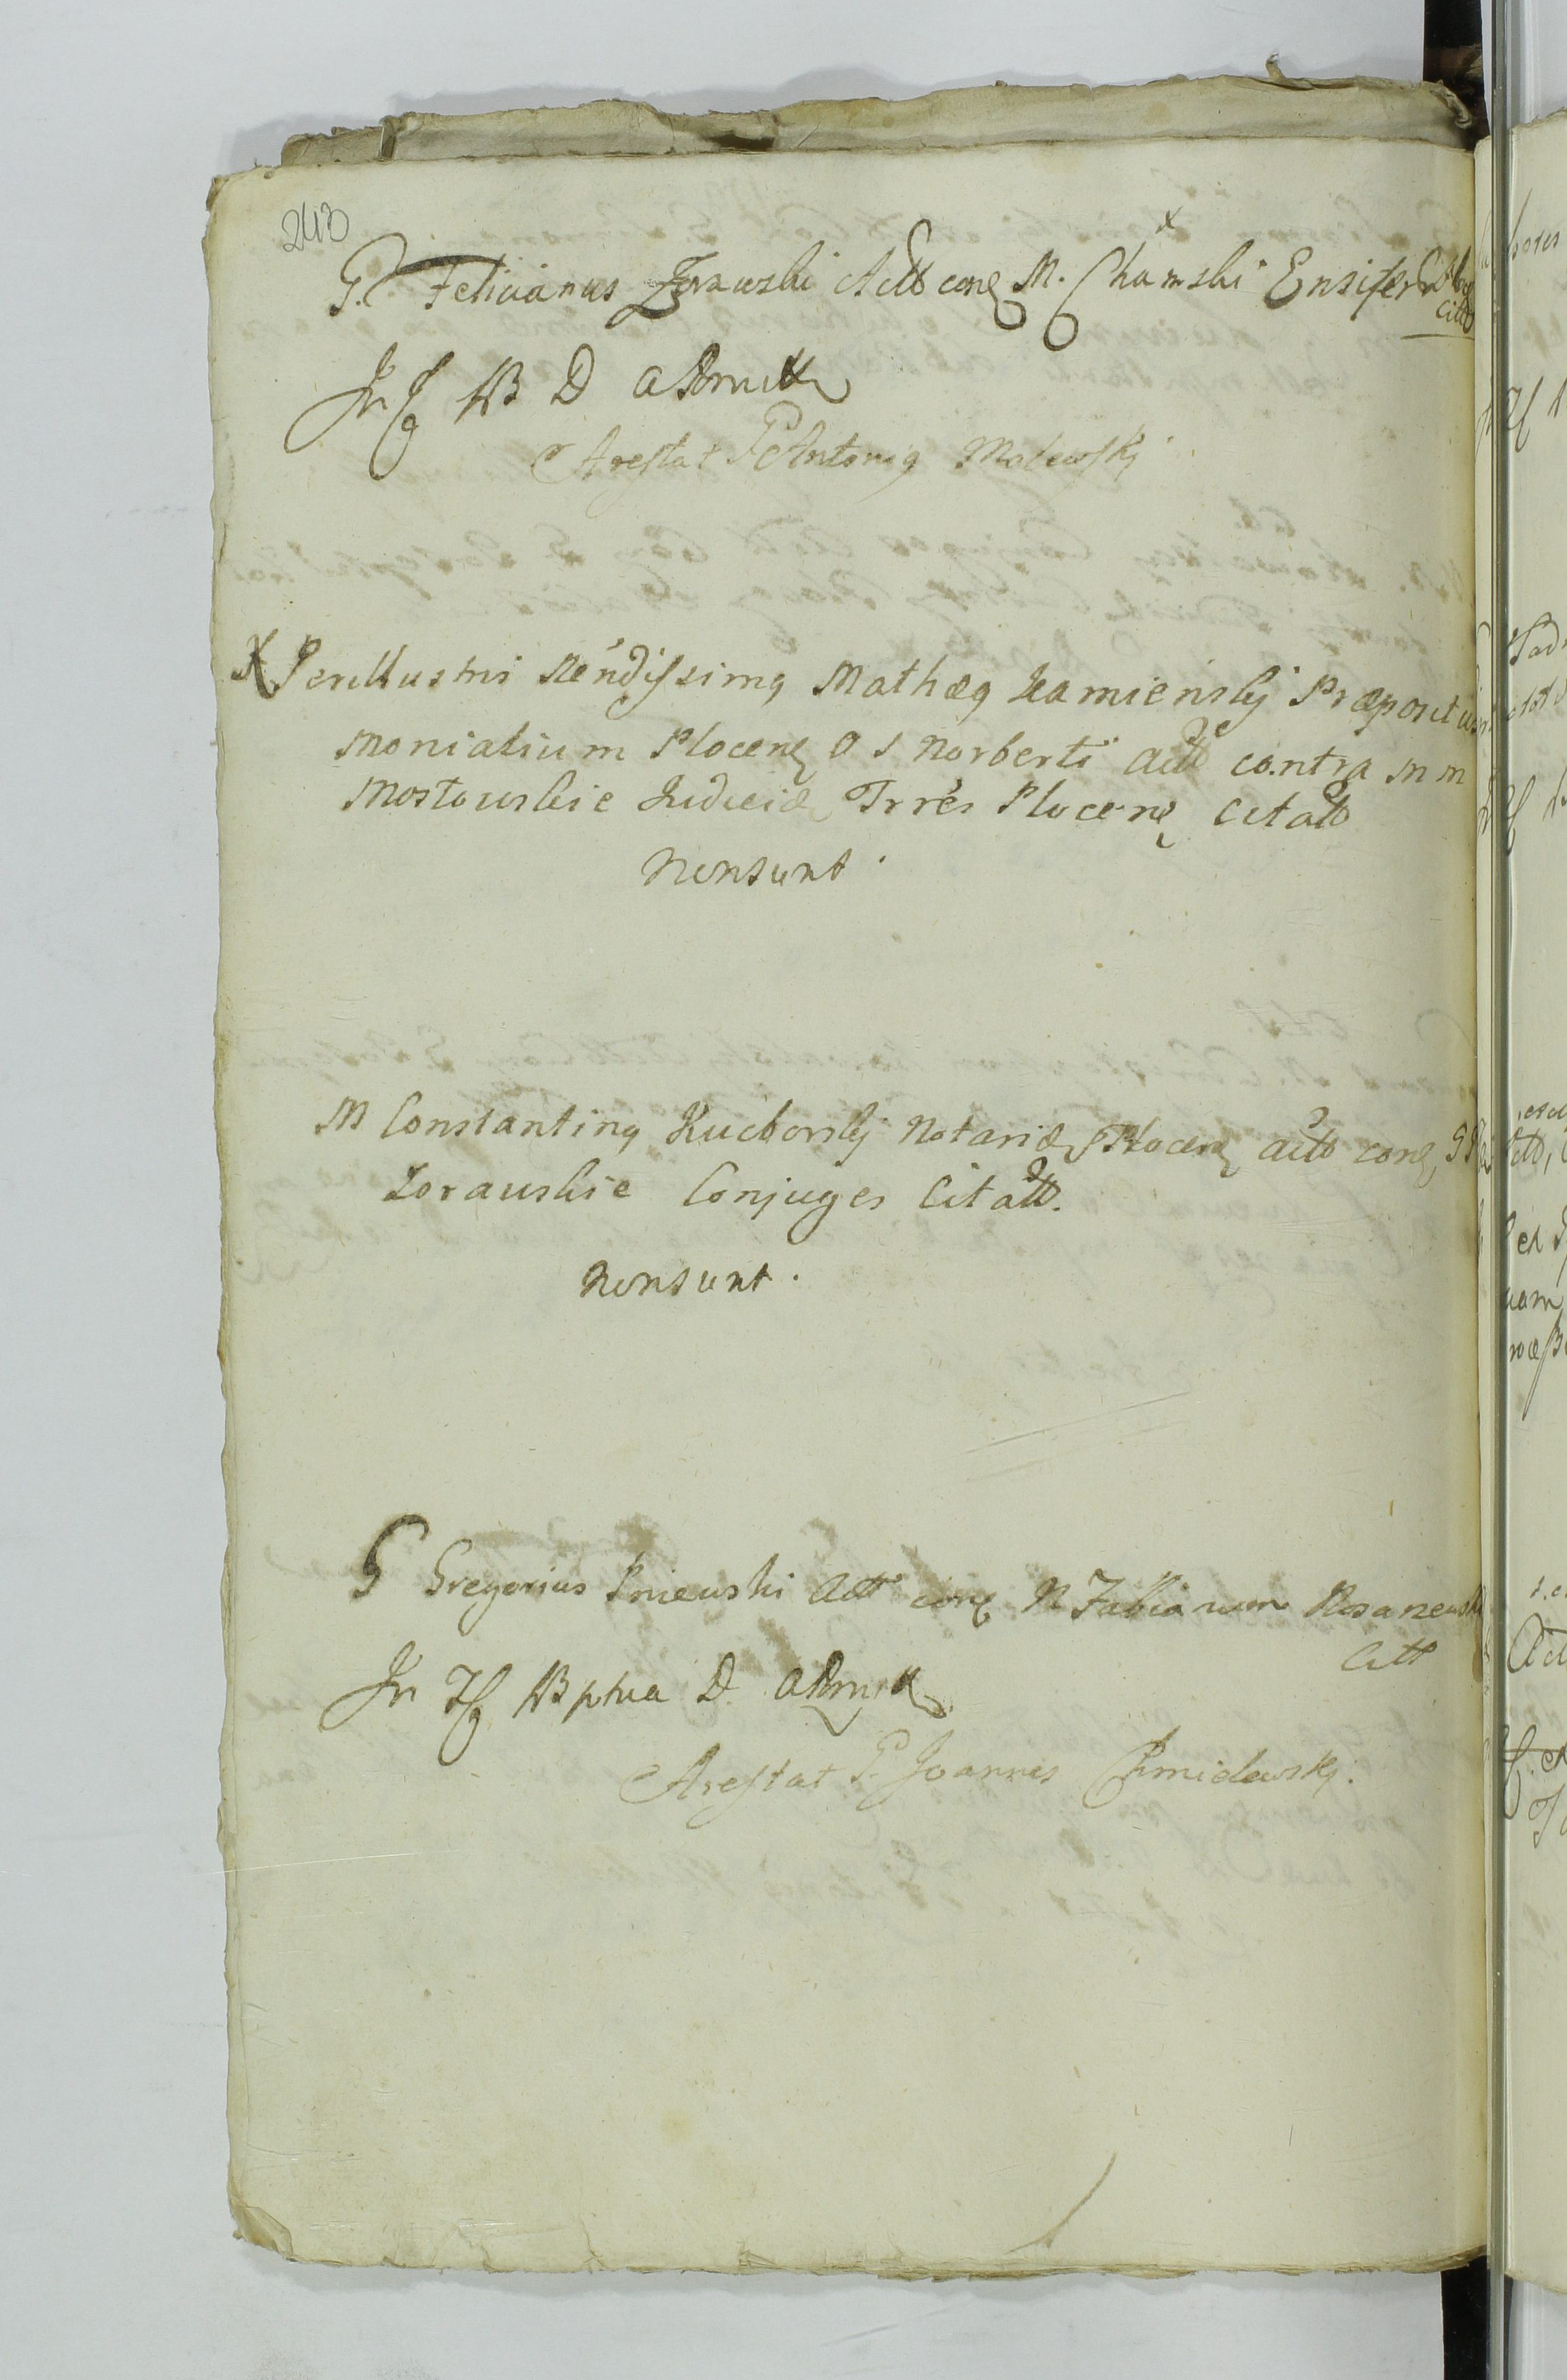 240
G. Felicianus Zorawski Actt conę M. Chamski Ensifer
Citt
In Cg AB D admitt
Arestat G Antonig Molewskj
X Perillustris Rendissimg Mathæg Kamienskj Præpositus
Monialium Plocenę O S Norberti actt contra M M
Mostowskie Judicią Trres Plocenę Citatt
nonsunt.
M Constanting Kucborskj Notarią Plocenę actt conę GG
Zorawskie Conjuges Citatt.
nonsunt.
G Gregorius Pniewski Actt conę N Fabianum
Citt
In Cg AB ptua D admitt
Arestat G. Joannes Chmielewskj.